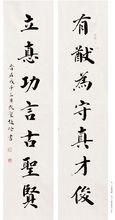 有猷為守真才俊
立真功言古聖賢